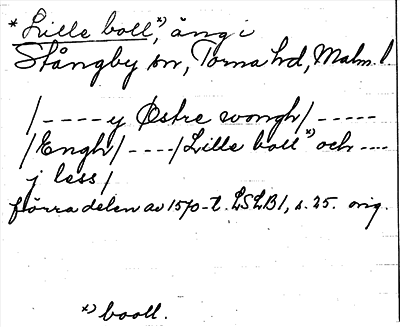 * Lille boll *), äng i
Stångby sn, Torna hd, Malm. l.
/----y Østre wongh/-----
/Engh/----/Lille boll *) och ----
j less/
förra delen av 1570-t. LSLB1, s. 25. orig.
*) booll.